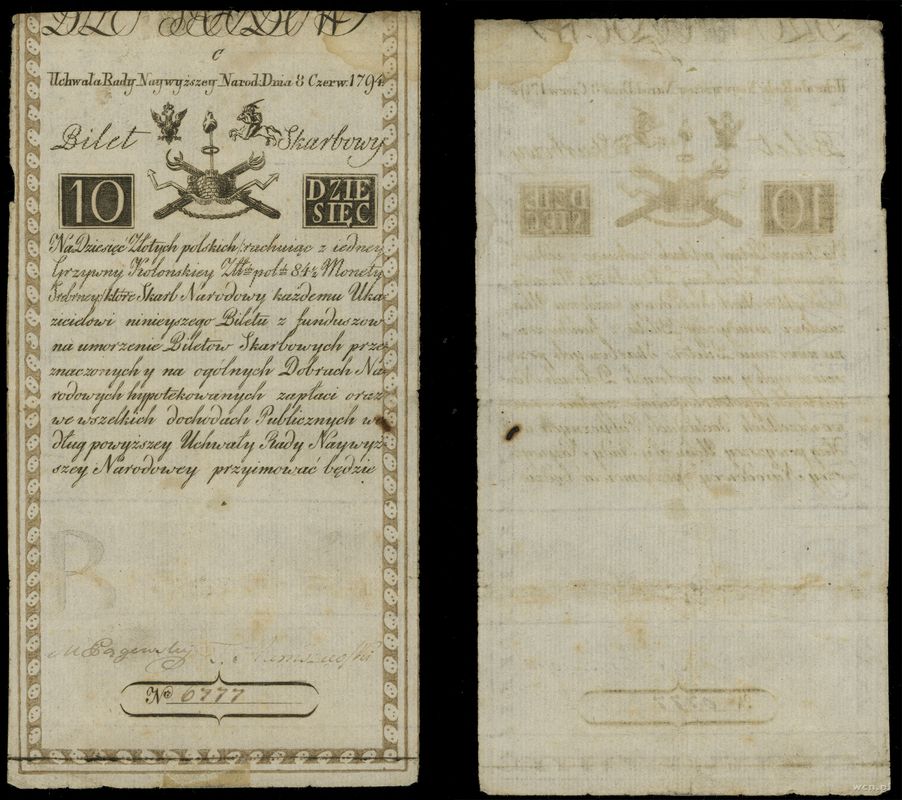 C
Uchwała Rady Naywyższey Narod: Dnia 8 Czerw: 1794
Bilet Skarbowy
10 DZIE
SIĘC
Na Dziesięc Złotych polskich (rachuiąc z iedney
Grzywny Kolonskiey Złł: pol: 84½ Monety
Srebrney) które Skarb Narodowy każdemu Uka
zicielowi ninieyszego Biletu z funduszow
na umorzenie Biletow Skarbowych prze
znaczonych y na ogólnych Dobrach Na
rodowych hypotekowanych zapłaci oraz
we wszelkich dochodach Publicznych we
dług powyższey Uchwały Rady Naywyż
szey Narodowey przyimować będzie
No 6777
wcn.pl